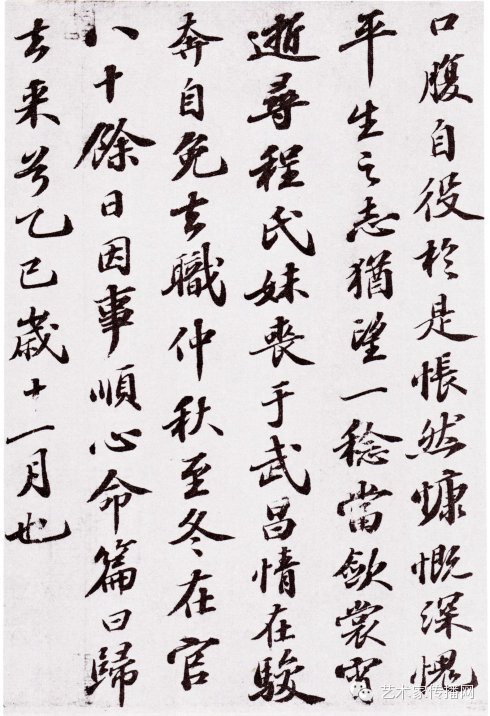 口腹自役於是悵然慷慨深愧
平生之志猶望一稔當斂裳宵
逝尋程氏妹喪于武昌情在駿
奔自免去職仲秋至冬在官
八十餘日因事順心命篇曰歸
去来兮乙巳歲十一月也
艺术家传播网